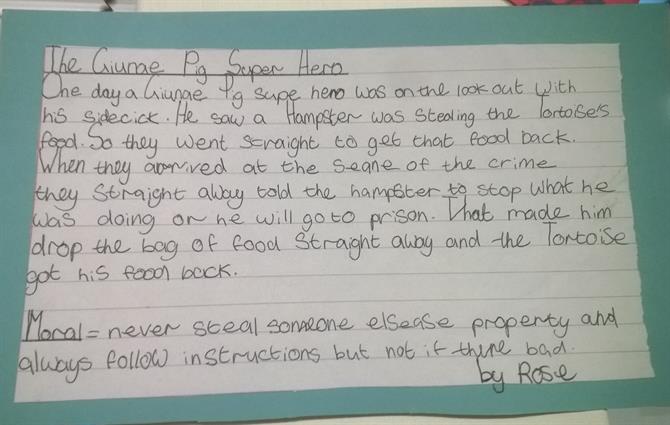 The Giunae Pig Super Hero
One day a Giunae Pg supe hero was on the look out with
his sidecick. He saw a Hampster was stealing the Tortoise's
food. So they went straight to get that food back.
When they arrived at the seane of the crime
they straight away told the hampster to stop what he
was doing or he will go to prison. That made him
drop the bag of food straight away and the Tortoise
got his food back.
Moral = never steal someone elsease property and
always follow instructions but not if there bad.
by Rose